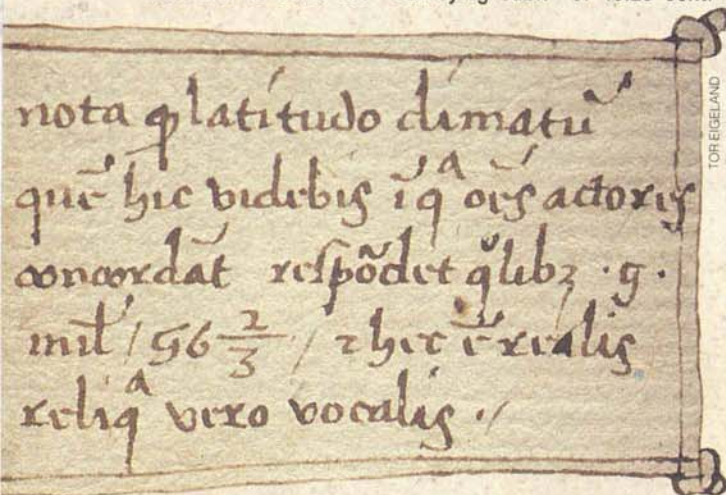 nota ꝙ latitudo climatũ
quẽ hic videbis ĩ qᵃ oẽs actores
concordãt respõdet qͦlibꝫ · g ·
mil̃ / 56 2/3 / ⁊ hec ẽ realis
reliqᵃ vero vocalis ·/
TOR EIGELAND